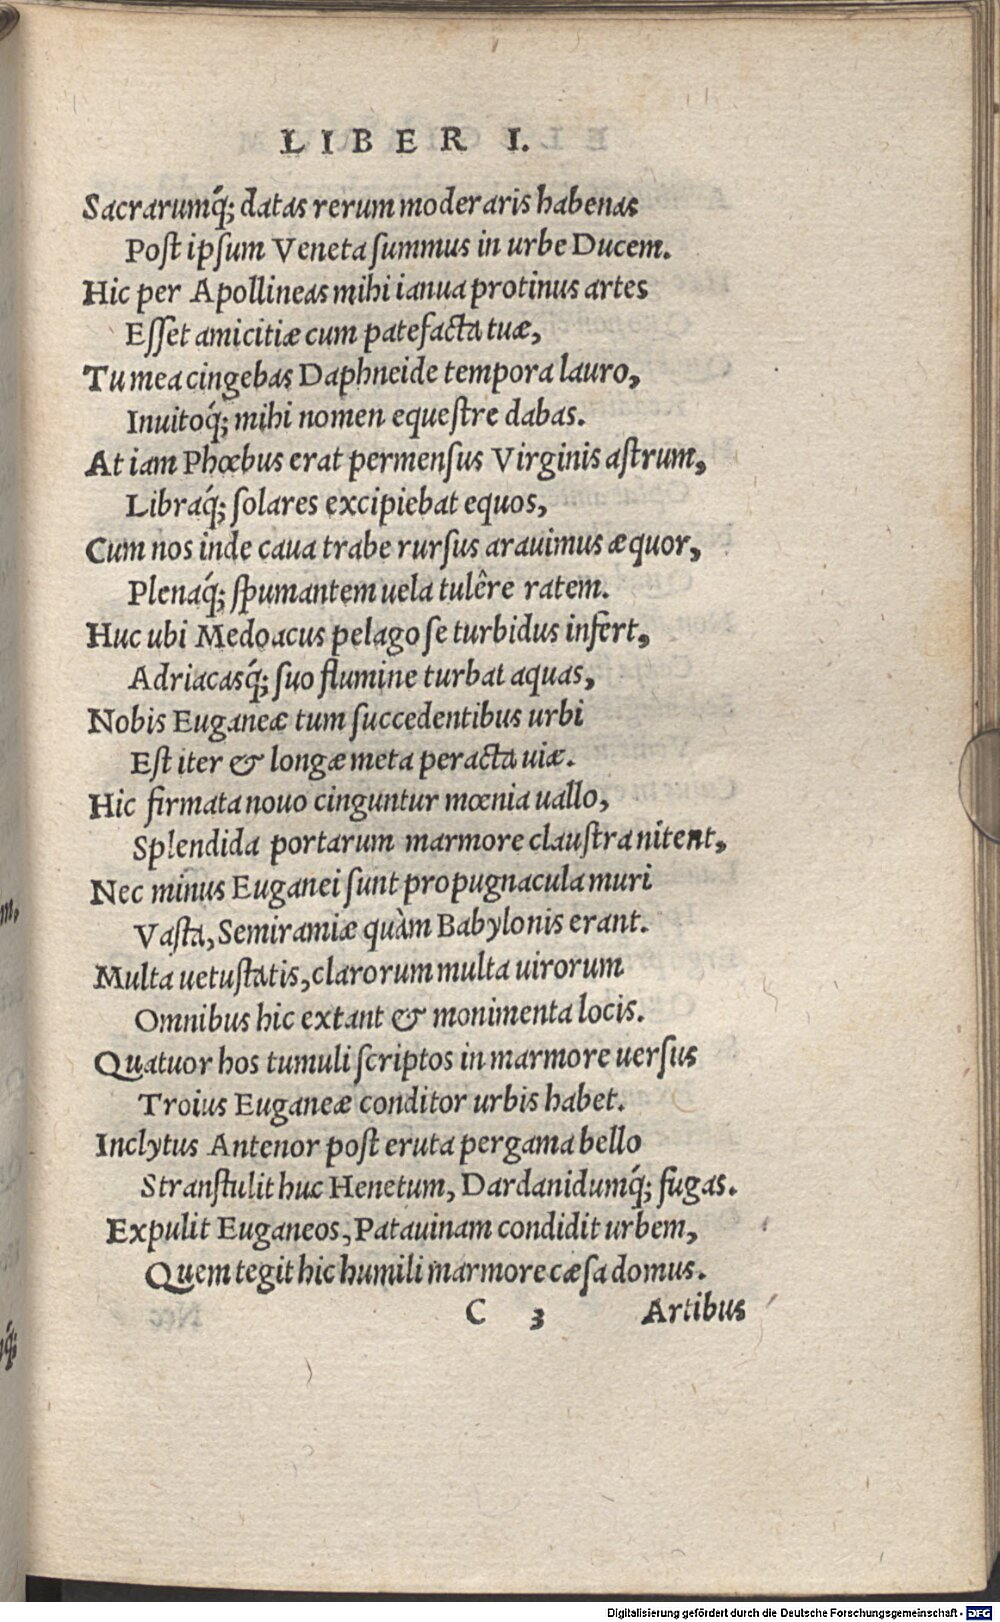 LIBER I.
Sacrarumq́; datas rerum moderaris habenas
Post ipsum Veneta summus in urbe Ducem.
Hic per Apollineas mihi ianua protinus artes
Esset amicitiæ cum patefacta tuæ,
Tu mea cingebas Daphneide tempora lauro,
Inuitoq́; mihi nomen equestre dabas.
At iam Phœbus erat permensus Virginis astrum,
Libraq́; solares excipiebat equos,
Cum nos inde caua trabe rursus arauimus æquor,
Plenaq́; spumantem uela tulêre ratem.
Huc ubi Medoacus pelago se turbidus infert,
Adriacasq́; suo flumine turbat aquas,
Nobis Euganeæ tum succedentibus urbi
Est iter & longæ meta peracta uiæ.
Hic firmata nouo cinguntur mœnia uallo,
Splendida portarum marmore claustra nitent,
Nec minus Euganei sunt propugnacula muri
Vasta, Semiramiæ quàm Babylonis erant.
Multa uetustatis, clarorum multa uirorum
Omnibus hic extant & monimenta locis.
Quatuor hos tumuli scriptos in marmore uersus
Troius Euganeæ conditor urbis habet.
Inclytus Antenor post eruta pergama bello
Stranstulit huc Henetum, Dardanidumq́; fugas.
Expulit Euganeos, Patauinam condidit urbem,
Quem tegit hic humili marmore cæsa domus.
C 3 Artibus
Digitalisierung gefördert durch die Deutsche Forschungsgemeinschaft - DFG